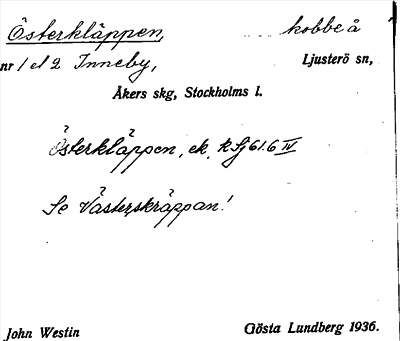 Österkläppen, kobbe å
nr 1 el 2 Inneby, Ljusterö sn,
Åkers skg, Stockholms l.
Österkläppen, ek. kSj 61.6 IV
Se Västerskräppan!
John Westin Gösta Lundberg 1936.